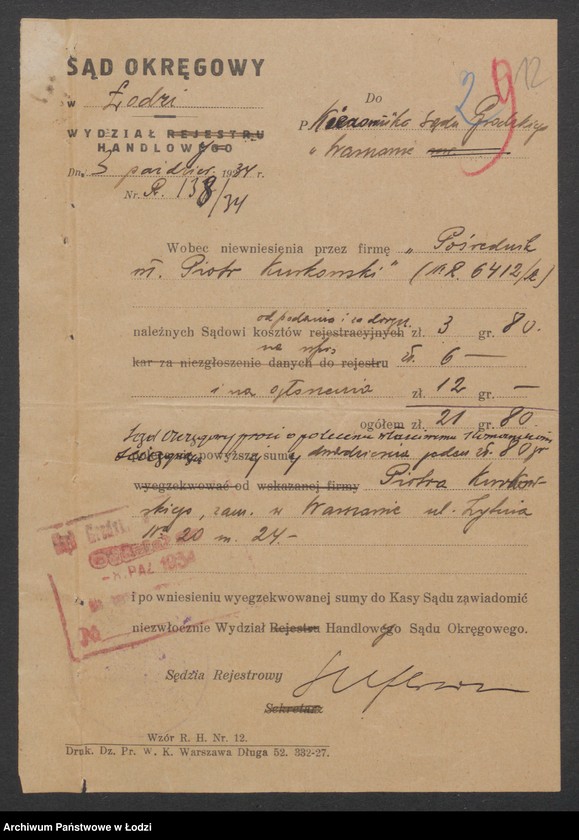 SĄD OKRĘGOWY
w Łodzi
WYDZIAŁ REJESTRU
HANDLOWEGO
Dn. 3 paździer. 1934 r.
Nr. R. 138/34
29 12
Do
Kierownika Sądu Grodzkiego
w Warszawie
Wobec niewniesienia przez firmę „Pośrednik
wł. Piotr Kurkowski" (R. 6412/
od podania i za doręcz.
należnych Sądowi kosztów rejestracyjnych zł. 3 gr. 80.
na wpis
kar za niezgłoszenie danych do rejestru zł. 6 —
i na ogłoszenia zł. 12 gr. —
ogółem zł. 21 gr. 80.
Sąd Okręgowy prosi o polecenie właściwemu
powyższą sumę dwadzieścia jeden zł. 80 gr
wyegzekwować od wskazanej firmy Piotra Kurkow-
skiego, zam. w Warszawie ul. Żytnia
Nr 20 m. 24 -
Sąd Grodzki
- 8. PAŹ. 1934
i po wniesieniu wyegzekwowanej sumy do Kasy Sądu zawiadomić
niezwłocznie Wydział Rejestru Handlowego Sądu Okręgowego.
Sędzia Rejestrowy
Sekretarz
Wzór R. H. Nr. 12.
Druk. Dz. Pr. W. K. Warszawa Długa 52. 332-27.
Archiwum Państwowe w Łodzi